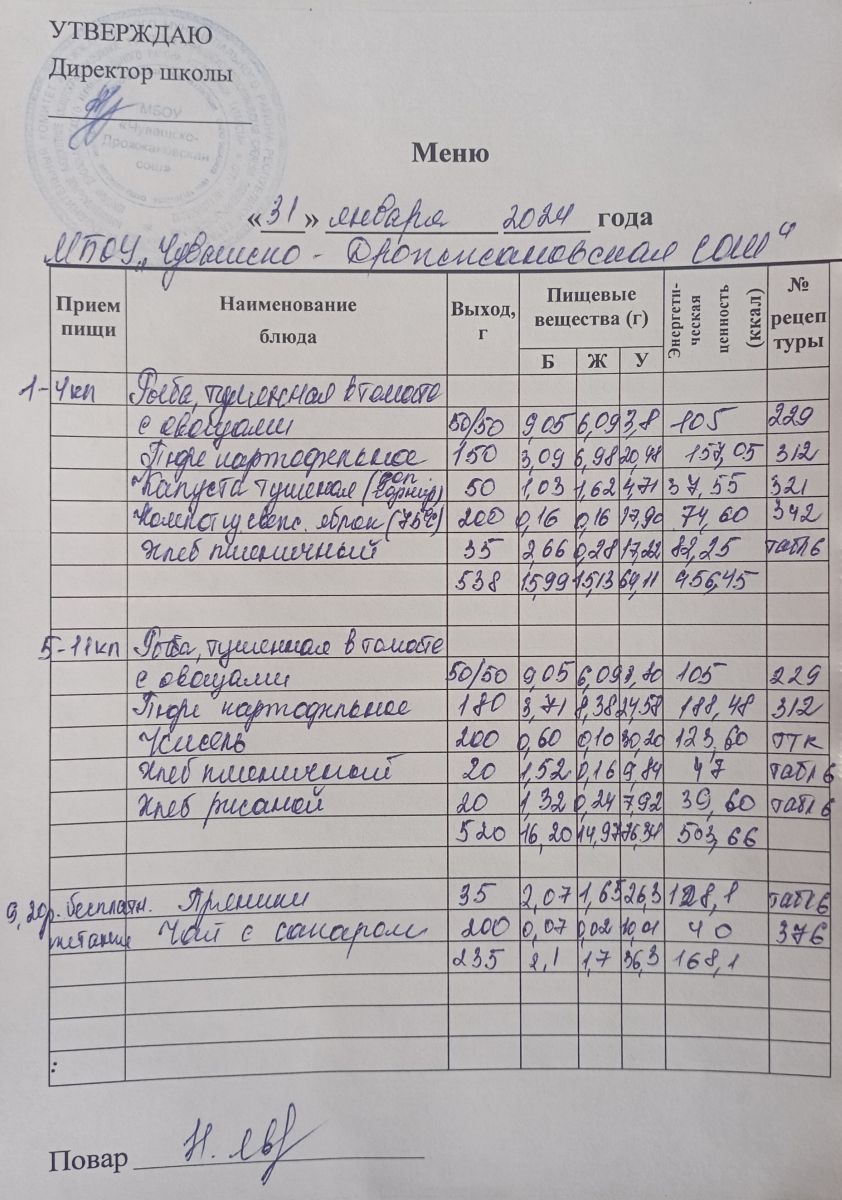 УТВЕРЖДАЮ
Директор школы
МБОУ
«Чувашско-
Дрожжановская
сош»
Меню
«31» января 2024 года
МБОУ „Чувашско - Дрожжановская СОШ“
Прием пищи Наименование блюда Выход, г Пищевые вещества (г) Б Ж У Энергети-ческая ценность (ккал) № рецеп туры
1-4кл Рыба, тушенная в томате
с овощами 50/50 9,05 6,09 3,8 105 229
Пюре картофельное 150 3,09 6,98 20,48 157,05 312
Капуста тушеная (доп гарнир) 50 1,03 1,62 4,71 37,55 321
Компот из свеж. яблок (75°С) 200 0,16 0,16 17,90 74,60 342
Хлеб пшеничный 35 2,66 0,28 17,22 82,25 табл 6
538 15,99 15,13 64,11 456,45
5-11кл Рыба, тушенная в томате
с овощами 50/50 9,05 6,09 3,80 105 229
Пюре картофельное 180 3,71 8,38 24,58 188,48 312
Кисель 200 0,60 0,10 30,20 123,60 ТТК
Хлеб пшеничный 20 1,52 0,16 9,84 47 табл 6
Хлеб ржаной 20 1,32 0,24 7,92 39,60 табл 6
520 16,20 14,97 76,34 503,66
9,20р. бесплатн. Пряники 35 2,07 1,65 26,3 128,1 табл 6
питание Чай с сахаром 200 0,07 0,02 10,01 40 376
235 2,1 1,7 36,3 168,1
:
Повар Н. Яв